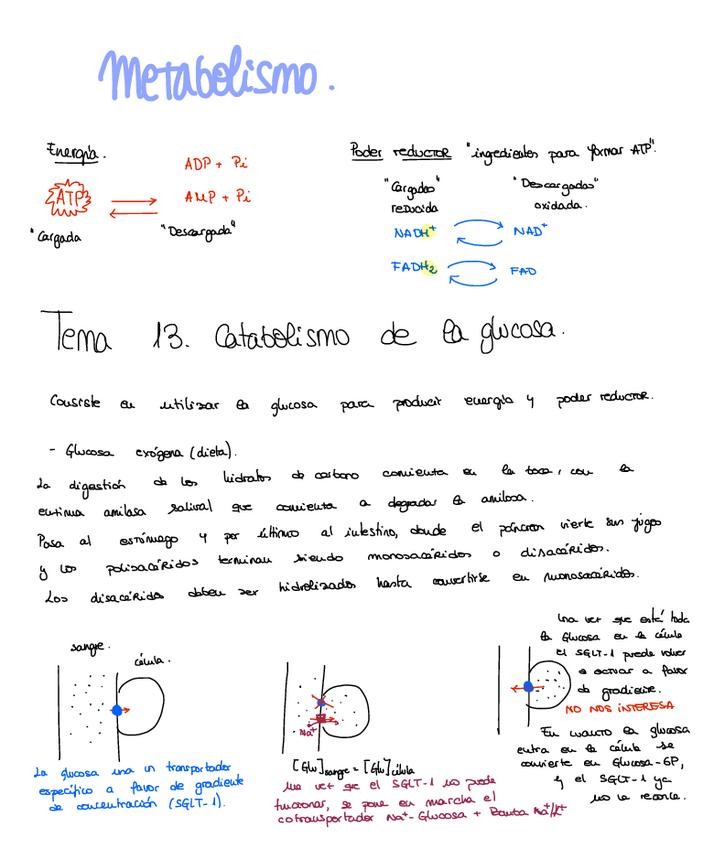 Metabolismo.
Energía.
ADP + Pi
ATP
AMP + Pi
"Cargada
"Descargada"
Poder reductor "ingredientes para formar ATP".
"Cargados"
reducida
"Descargados"
oxidada.
NADH+
NAD+
FADH2
FAD
Tema 13. Catabolismo de la glucosa.
Consiste en utilizar la glucosa para producir energía y poder reductor.
- Glucosa exógena (dieta).
La digestión de los hidratos de carbono comienza en la boca, con la
enzima amilasa salival que comienza a degradar la amilosa.
Pasa al estómago y por último al intestino, donde el páncreas vierte sus jugos
y los polisacáridos terminan siendo monosacáridos o disacáridos.
Los disacáridos deben ser hidrolizados hasta convertirse en monosacáridos.
sangre.
célula.
La glucosa usa un transportador
específico a favor de gradiente
de concentración (SGLT-1).
Na+
[Glu]sangre = [Glu]célula
Una vez que el SGLT-1 no puede
funcionar, se pone en marcha el
cotransportador Na+- Glucosa + Bomba Na+/K+
Una vez que está toda
la Glucosa en la célula
el SGLT-1 puede volver
a actuar a favor
de gradiente.
NO NOS INTERESA
En cuanto la glucosa
entra en la célula se
convierte en Glucosa-6P,
y el SGLT-1 ya
no la reconoce.